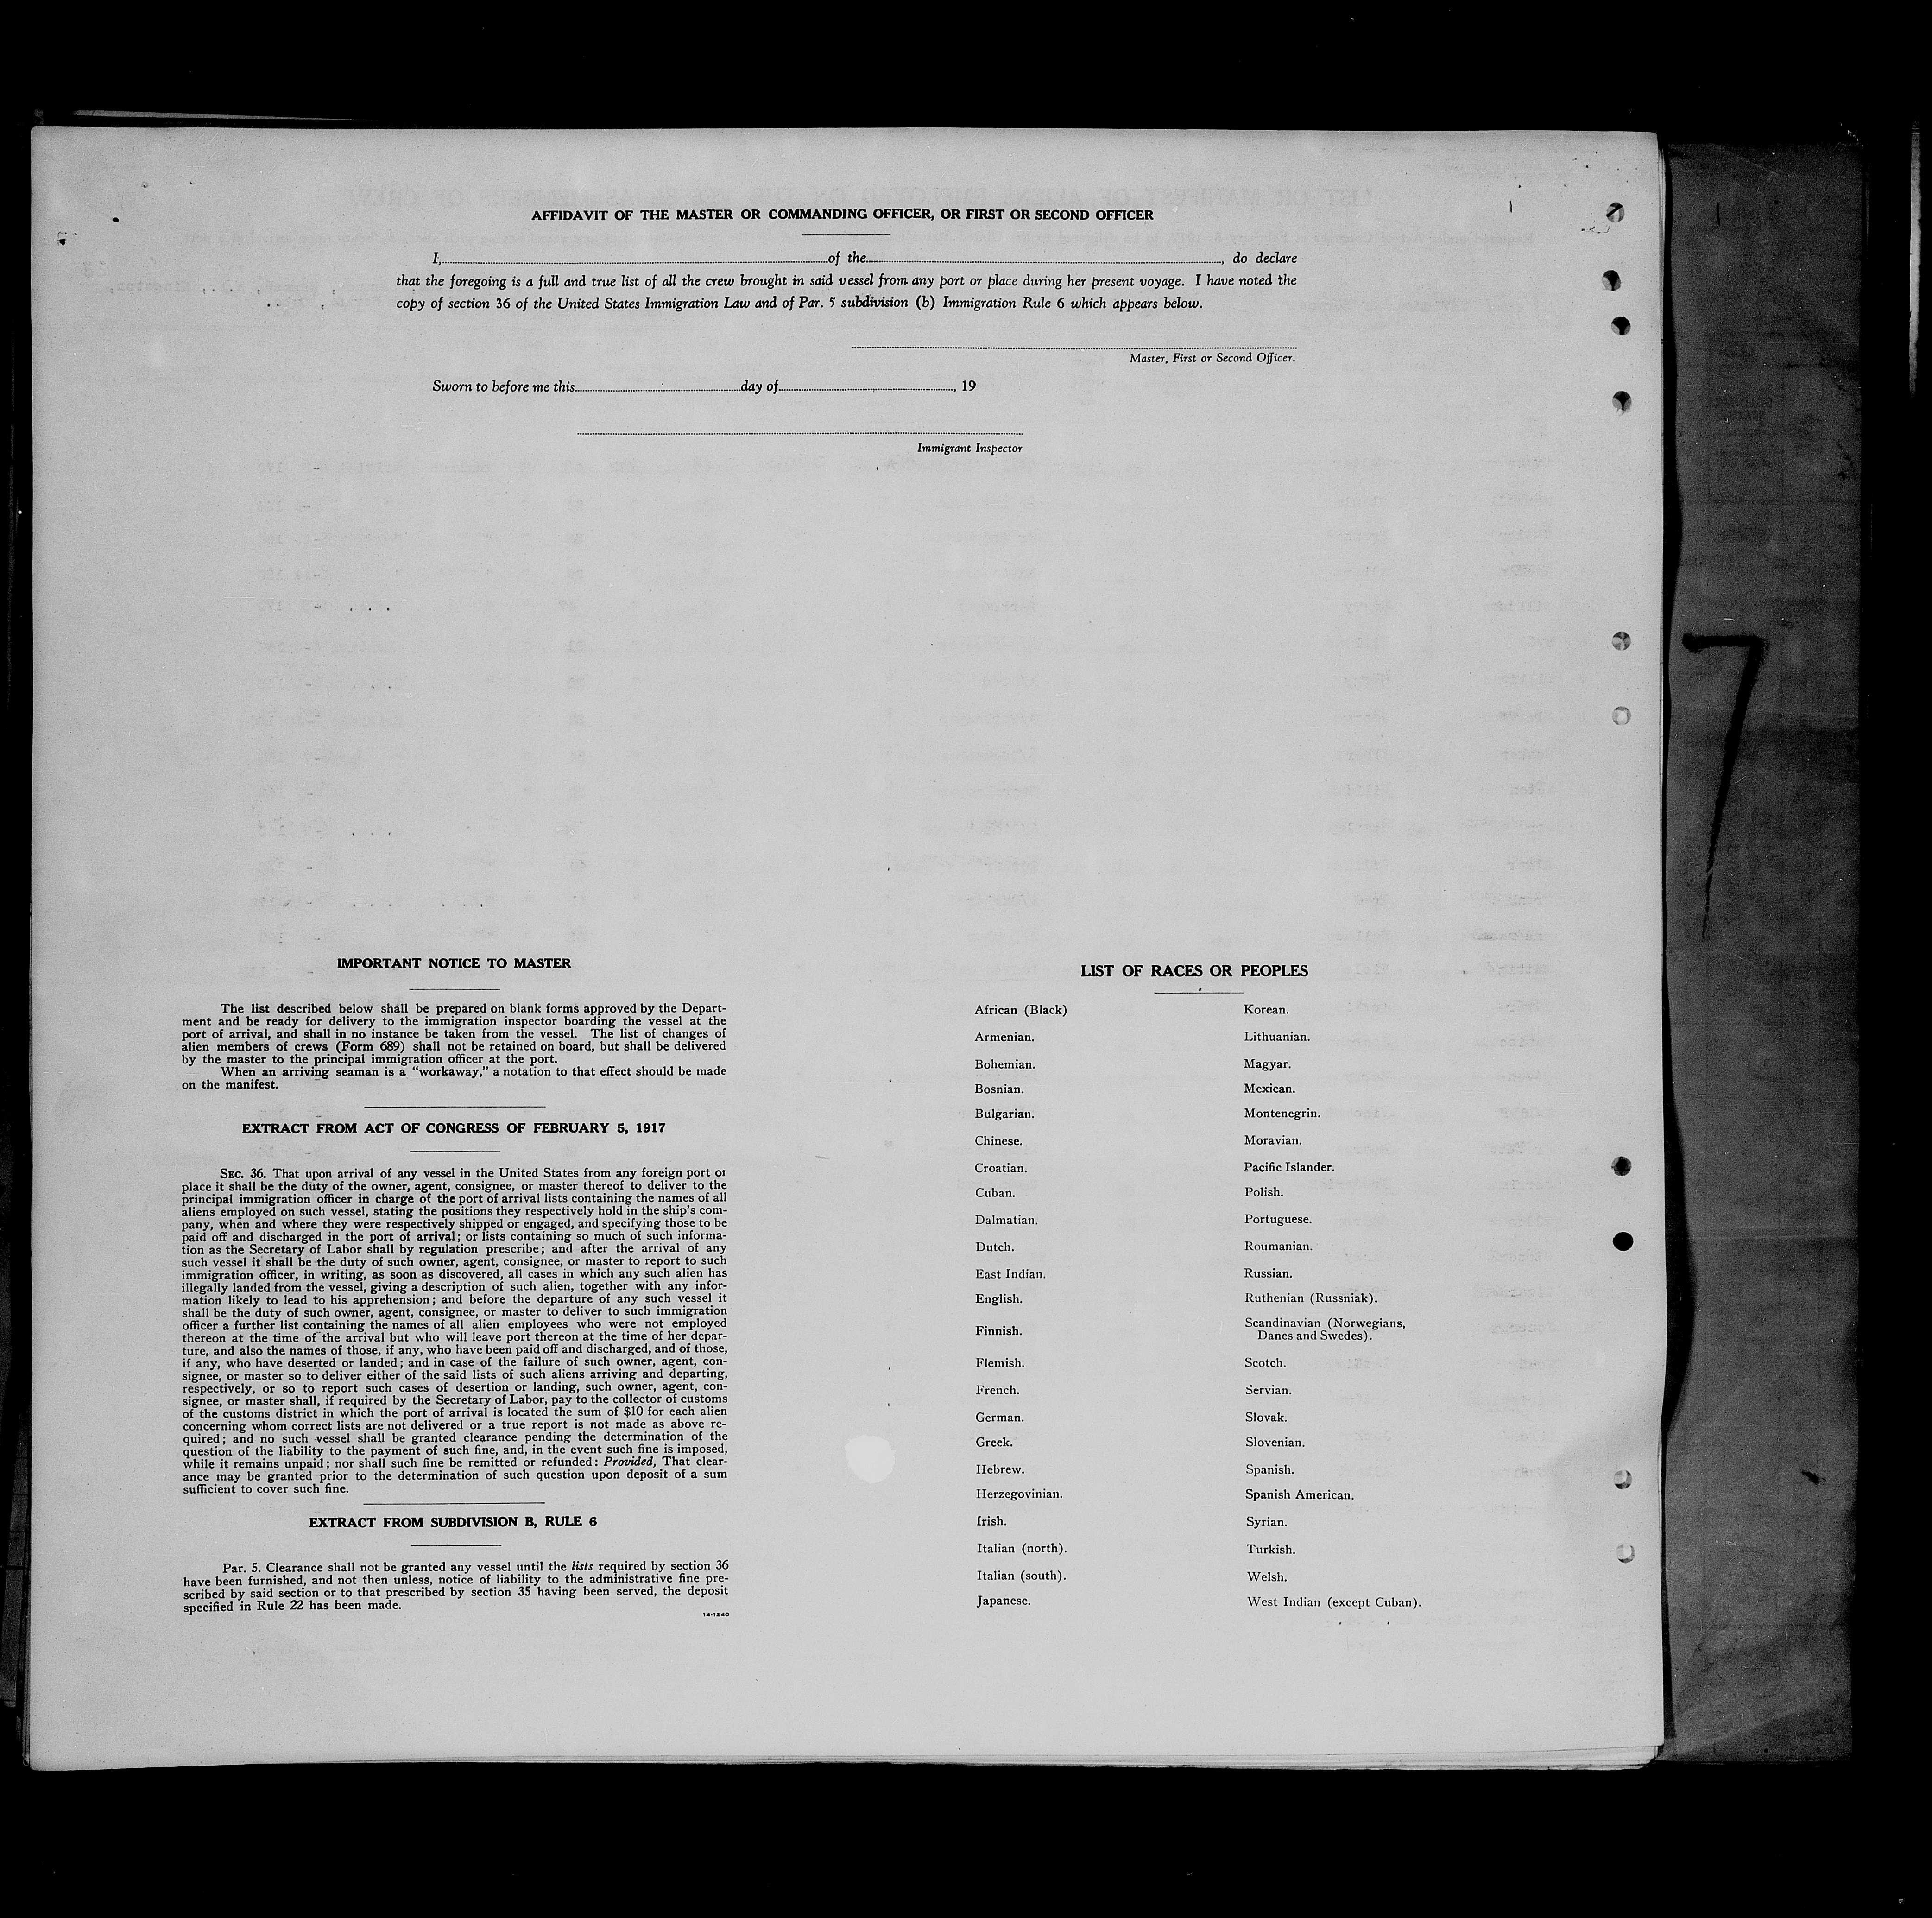 AFFIDAVIT OF THE MASTER OR COMMANDING OFFICER, OR FIRST OR SECOND OFFICER
I, of the , do declare
that the foregoing is a full and true list of all the crew brought in said vessel from any port or place during her present voyage. I have noted the
copy of section 36 of the United States Immigration Law and of Par. 5 subdivision (b) Immigration Rule 6 which appears below.
Master, First or Second Officer.
Sworn to before me this day of , 19
Immigrant Inspector
7
IMPORTANT NOTICE TO MASTER
The list described below shall be prepared on blank forms approved by the Depart-
ment and be ready for delivery to the immigration inspector boarding the vessel at the
port of arrival, and shall in no instance be taken from the vessel. The list of changes of
alien members of crews (Form 689) shall not be retained on board, but shall be delivered
by the master to the principal immigration officer at the port.
When an arriving seaman is a "workaway," a notation to that effect should be made
on the manifest.
EXTRACT FROM ACT OF CONGRESS OF FEBRUARY 5, 1917
SEC. 36. That upon arrival of any vessel in the United States from any foreign port or
place it shall be the duty of the owner, agent, consignee, or master thereof to deliver to the
principal immigration officer in charge of the port of arrival lists containing the names of all
aliens employed on such vessel, stating the positions they respectively hold in the ship's com-
pany, when and where they were respectively shipped or engaged, and specifying those to be
paid off and discharged in the port of arrival; or lists containing so much of such informa-
tion as the Secretary of Labor shall by regulation prescribe; and after the arrival of any
such vessel it shall be the duty of such owner, agent, consignee, or master to report to such
immigration officer, in writing, as soon as discovered, all cases in which any such alien has
illegally landed from the vessel, giving a description of such alien, together with any infor-
mation likely to lead to his apprehension; and before the departure of any such vessel it
shall be the duty of such owner, agent, consignee, or master to deliver to such immigration
officer a further list containing the names of all alien employees who were not employed
thereon at the time of the arrival but who will leave port thereon at the time of her depar-
ture, and also the names of those, if any, who have been paid off and discharged, and of those,
if any, who have deserted or landed; and in case of the failure of such owner, agent, con-
signee, or master so to deliver either of the said lists of such aliens arriving and departing,
respectively, or so to report such cases of desertion or landing, such owner, agent, con-
signee, or master shall, if required by the Secretary of Labor, pay to the collector of customs
of the customs district in which the port of arrival is located the sum of $10 for each alien
concerning whom correct lists are not delivered or a true report is not made as above re-
quired; and no such vessel shall be granted clearance pending the determination of the
question of the liability to the payment of such fine, and, in the event such fine is imposed,
while it remains unpaid; nor shall such fine be remitted or refunded: Provided, That clear-
ance may be granted prior to the determination of such question upon deposit of a sum
sufficient to cover such fine.
EXTRACT FROM SUBDIVISION B, RULE 6
Par. 5. Clearance shall not be granted any vessel until the lists required by section 36
have been furnished, and not then unless, notice of liability to the administrative fine pre-
scribed by said section or to that prescribed by section 35 having been served, the deposit
specified in Rule 22 has been made.
14-1240
LIST OF RACES OR PEOPLES
African (Black)
Armenian.
Bohemian.
Bosnian.
Bulgarian.
Chinese.
Croatian.
Cuban.
Dalmatian.
Dutch.
East Indian.
English.
Finnish.
Flemish.
French.
German.
Greek.
Hebrew.
Herzegovinian.
Irish.
Italian (north).
Italian (south).
Japanese.
Korean.
Lithuanian.
Magyar.
Mexican.
Montenegrin.
Moravian.
Pacific Islander.
Polish.
Portuguese.
Roumanian.
Russian.
Ruthenian (Russniak).
Scandinavian (Norwegians,
Danes and Swedes).
Scotch.
Servian.
Slovak.
Slovenian.
Spanish.
Spanish American.
Syrian.
Turkish.
Welsh.
West Indian (except Cuban).